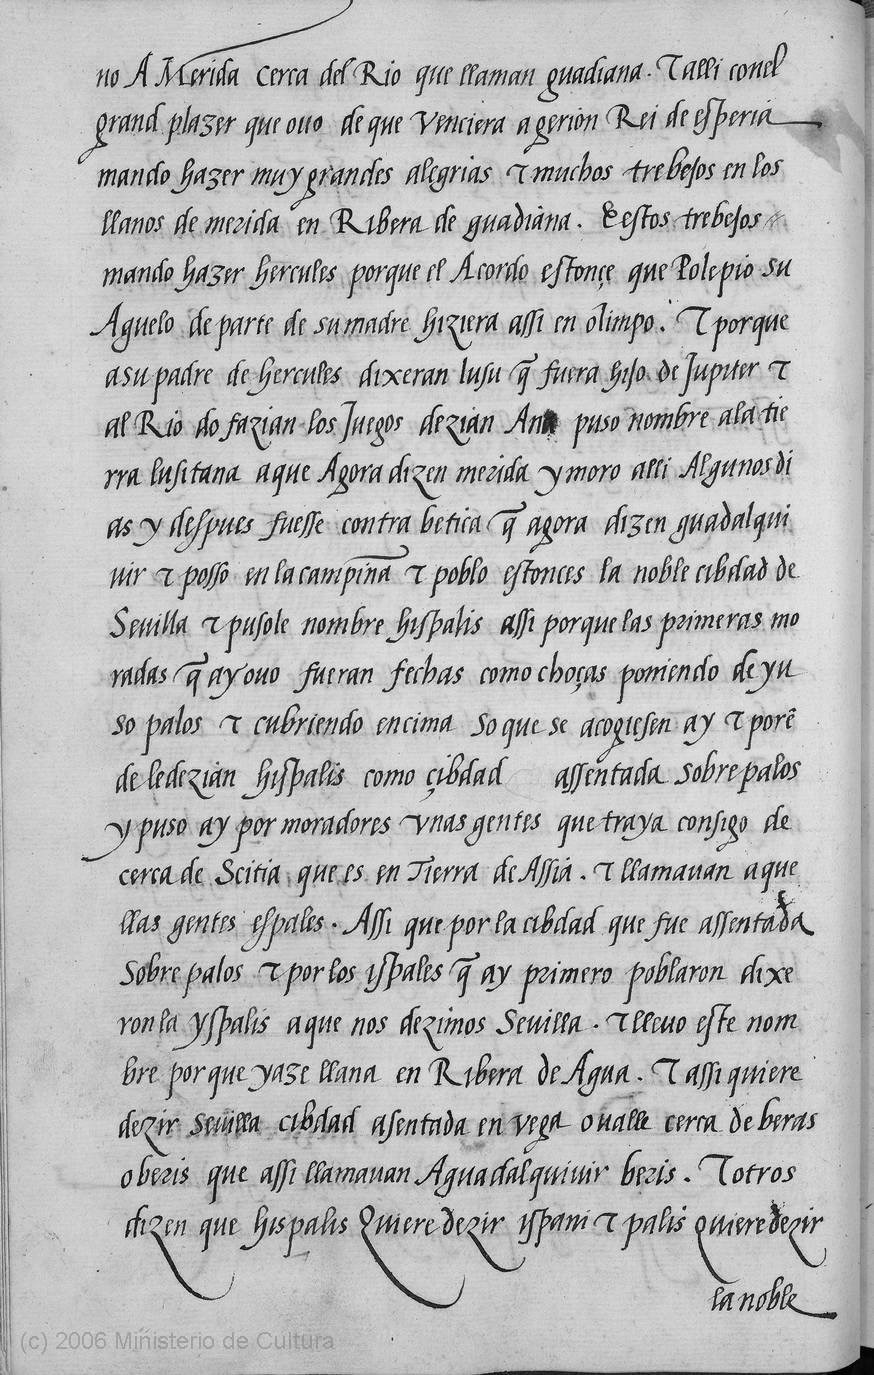 no A Merida cerca del Rio que llaman guadiana. τ alli conel
grand plazer que ouo de que venciera a gerion Rei de esperia
mando hazer muy grandes alegrias τ muchos trebejos en los
llanos de merida en Ribera de guadiana. E estos trebejos
mando hazer hercules porque el Acordo estonçe que Polepio su
Aguelo de parte de su madre hiziera assi en olimpo. τ porque
a su padre de hercules dixeran lusu q̃ fuera hijo de Jupiter τ
al Rio do fazian los Juegos dezian Ana puso nombre ala tie
rra lusitana a que Agora dizen merida y moro alli Algunos di
as y despues fuesse contra betica q̃ agora dizen guadalqui
uir τ posso en la campina τ poblo estonces la noble cibdad de
Seuilla τ pusole nombre hispalis assi porque las primeras mo
radas q̃ ay ouo fueran fechas como choças poniendo de yu
so palos τ cubriendo encima so que se acogiesen ay τ porẽ
de le dezian hispalis como çibdad assentada sobre palos
y puso ay por moradores vnas gentes que traya consigo de
cerca de Scitia que es en Tierra de Assia. τ llamauan aque
llas gentes espales. Assi que por la cibdad que fue assentada
Sobre palos τ por los ispales q̃ ay primero poblaron dixe
ron la yspalis a que nos dezimos Seuilla. τ lleuo este nom
bre porque yaze llana en Ribera de Agua. τ assi quiere
dezir seuilla cibdad asentada en vega o valle cerca de beras
o beris que assi llamauan Aguadalquivir beris. τ otros
dizen que hispalis Quiere dezir ispani τ palis quiere dezir
la noble
(c) 2006 Ministerio de Cultura